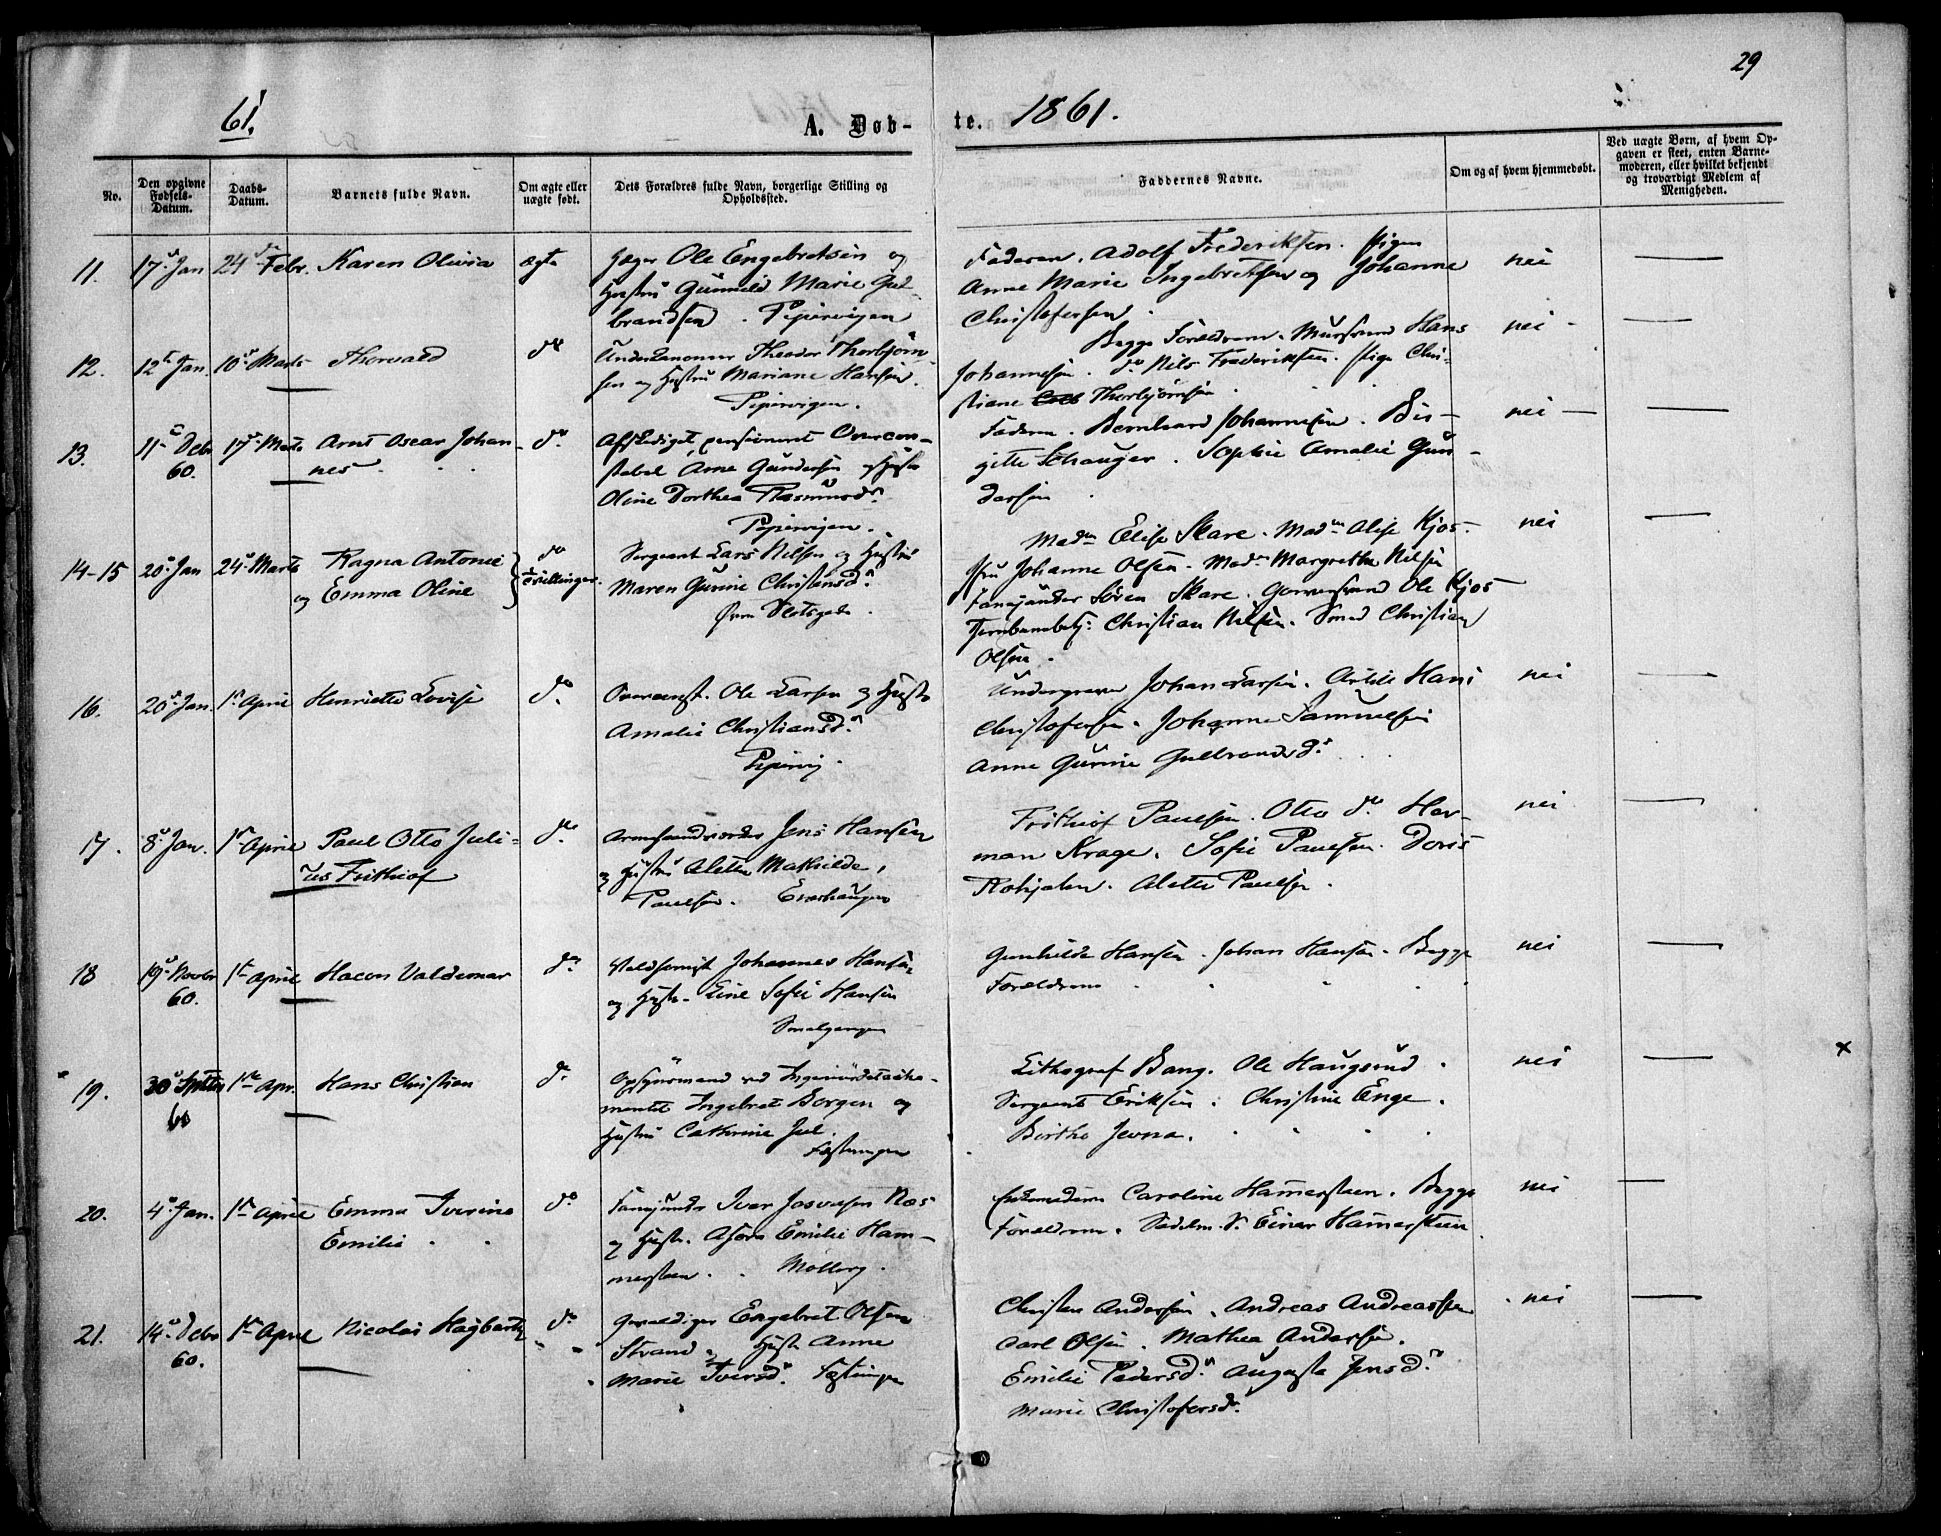 29
61.
A. Døb-
te. 1861.
No.
Den opgivne Fødsels-Datum.
Daabs-Datum.
Barnets fulde Navn.
Om ægte eller uægte født.
Dets Forældres fulde Navn, borgerlige Stilling og Opholdssted.
Faddernes Navne.
Om og af hvem hjemmedøbt.
Ved uægte Børn, af hvem Op-
gaven er skeet, enten Barne-
moderen, eller hvilket bekjendt
og troværdigt Medlem af
Menigheden.
11. 17d Jan 24d Febr. Karen Olivia ægte
Jæger Ole Engebretsen og
Hustru Gunnild Marie Gul-
brandsen . Pipervigen
Faderen. Adolf Frederiksen. Pigen
Anne Marie Ingebretsen og Johanne
Christofersen .
nei
12. 12t Jan. 10d Marts Thorvald do
Underkanoneer Theodor Thorbjørn-
sen og Hustru Mariane Hansen.
Pipervigen.
Begge Forældrene. Mursvend Hans
Johannesen. do Nils Frederiksen. Pige Chri-
stiane Thorbjørnsen
nei
13. 11d Decbr 60. 17d Marts Arnt Oscar Johan-
nes do
Afskediget pensioneret Overcon-
stabel Arne Gundersen og Hustru
Oline Dorthea Rasmusdr
Pipervigen.
Faderen. Bernhard Johannesen. Bir-
gitte Schauger. Sophie Amalie Gun-
dersen
nei
14-15 20d Jan 24d Marts Ragna Antonie
og Emma Oline do Tvillinger.
Sergeant Lars Nilsen og Hustru
Maren Gurine Christensdr
Øvre Slotsgade.
Madm Elise Skare. Madm Alise Kjos.
Fru Johanne Olsen. Madm Margrethe Nilsen
Fanejunker Søren Skare. Garversvend Ole Kjos
Jernbanebetj: Christian Nilsen. Smed Christian
Olsen.
nei
16. 20d Jan. 1st April Henriette Lovise do.
Overconst. Ole Larsen og Hustru
Amalie Christiansdr
Pipervig.
Johan Larsen. Hans
Christofersen. Johanne Samuelsen
Anne Gurine Gulbrandsdr
nei
17. 8d Jan. 1st April Paul Otto Juli-
us Frithiof do.
Jens Hansen
og Hustru Alette Mathilde
Paulsen. Enerhaugen
Frithiof Paulsen. Otto do Her-
man Krage. Sofie Paulsen. Doris
Alette Paulsen.
nei
18 19d Novbr 60. 1st April Hacon Valdemar do.
Johannes Hansen
og Hustr. Line Sofie Hansen
Smalgangen
Gunhilde Hansen. Johan Hansen. Begge
Forældrene
nei
19. 30d Septbr 60 1ste Apr. Hans Christian do.
Opsynsmand ved Ingeniørdetache-
mentet Ingebret Borgen og
Hustru Cathrine Jul.
Fæstningen
Lithograf Bang. Ole Haugsrud.
Sergeant Eriksen. Christine Enge.
Birthe Jevna.
nei
x
20. 4d Jan. 1st April Emma Iverine
Emilie do
Fanejunker Iver Næs
og Hustr. Emilie Ham-
mersteen. Møllerg.
Caroline Hamersteen. Begge
Forældrene. Einar Hamersteen.
nei
21. 14d Decbr 60. 1st April Nicolai Hagbarth do
Gevaldiger Engebret Olsen
Strand og Hustr Anne
Marie Iversdr. Fæstningen
Christen Andersen. Andreas Andreassen
Carl Olsen. Mathea Andersen.
Emilie Pedersdr. Augusta Jensdr.
Marie Christofersdr.
nei